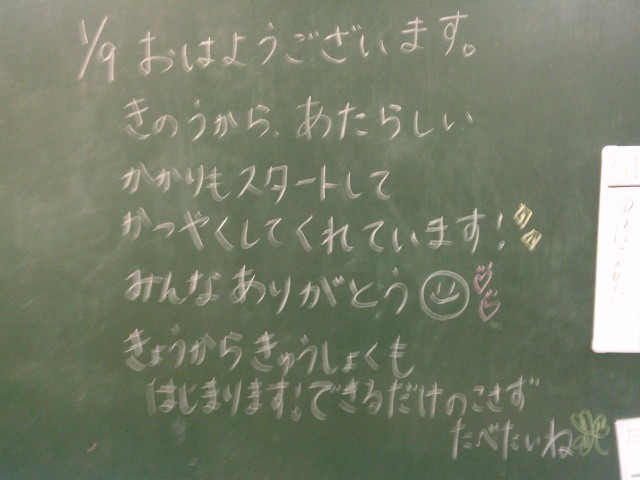 1/9 おはようございます。
きのうから、あたらしい
かかりもスタートして
かつやくしてくれています!
みんなありがとう
きょうからきゅうしょくも
はじまります!できるだけのこさず
たべたいね